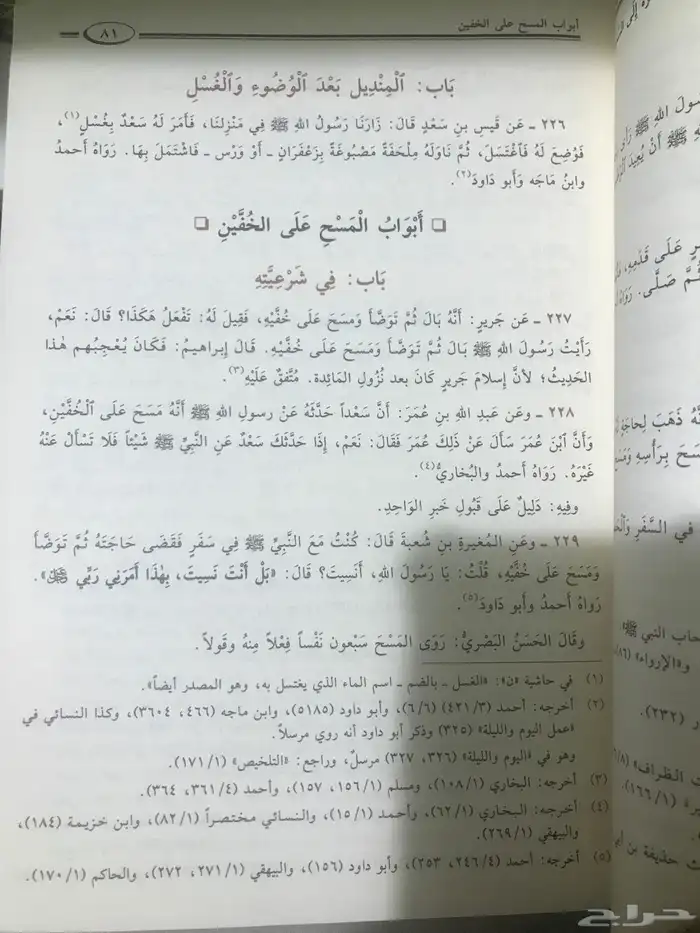 أبواب المسح على الخفين
٨١
بَاب: ٱلْمِنْدِيلِ بَعْدَ ٱلْوُضُوءِ وَٱلْغُسْلِ
٢٢٦ ـ عَن قَيسِ بنِ سَعْدٍ قَالَ: زَارَنَا رَسُولُ اللهِ ﷺ فِي مَنْزِلِنَا، فَأَمَرَ لَهُ سَعْدٌ بِغُسْلٍ(١)،
فَوُضِعَ لَهُ فَاغْتَسَلَ، ثُمَّ نَاوَلَهُ مِلْحَفَةً مَصْبُوغَةً بِزَعْفَرَانٍ ـ أَوْ وَرْسٍ ـ فَاشْتَمَلَ بِهَا. رَوَاهُ أَحمدُ
وابنُ مَاجَه وَأَبو دَاودَ(٢).
❑ أَبْوَابُ المَسْحِ عَلَى الخُفَّيْنِ ❑
بَاب: فِي شَرْعِيَّتِهِ
٢٢٧ ـ عَن جَريرٍ: أَنَّهُ بَالَ ثُمَّ تَوَضَّأَ وَمَسَحَ عَلَى خُفَّيْهِ، فَقِيلَ لَهُ: تَفْعَلُ هَكَذَا؟ قَالَ: نَعَمْ،
رَأَيْتُ رَسُولَ اللهِ ﷺ بَالَ ثُمَّ تَوَضَّأَ وَمَسَحَ عَلَى خُفَّيْهِ. قَالَ إِبراهيمُ: فَكَانَ يُعْجِبُهم هٰذا
الحَدِيثُ؛ لأنَّ إِسلامَ جَريرٍ كَانَ بعد نُزُولِ المَائِدة. مُتَّفقٌ عَلَيْهِ(٣).
٢٢٨ ـ وعَن عَبدِ اللهِ بنِ عُمَرَ: أنَّ سَعْداً حَدَّثَهُ عَنْ رسولِ اللهِ ﷺ أَنَّهُ مَسَحَ عَلَى ٱلْخُفَّيْنِ،
وَأَنَّ ٱبْنَ عُمَرَ سَأَلَ عَنْ ذَلِكَ عُمَرَ فَقَالَ: نَعَمْ، إِذَا حَدَّثَكَ سَعْدٌ عَنِ النَّبِيِّ ﷺ شَيْئاً فَلَا تَسْأَلْ عَنْهُ
غَيْرَهُ. رَوَاهُ أَحمدُ والبُخاريُّ(٤).
وفِيهِ: دَلِيلٌ عَلَى قَبُولِ خَبرِ الوَاحِدِ.
٢٢٩ ـ وعَنِ المُغيرةِ بنِ شُعبةَ قَالَ: كُنْتُ مَعَ النَّبِيِّ ﷺ فِي سَفَرٍ فَقَضَى حَاجَتَهُ ثُمَّ تَوَضَّأَ
وَمَسَحَ عَلَى خُفَّيْهِ، قُلْتُ: يَا رَسُولَ اللهِ، أَنَسِيتَ؟ قَالَ: «بَلْ أَنْتَ نَسِيتَ، بِهٰذَا أَمَرَنِي رَبِّي ﷻ».
رَوَاهُ أَحمدُ وأبو دَاودَ(٥).
وقَالَ الحَسَنُ البَصْرِيُّ: رَوَى المَسْحَ سَبْعونَ نَفْساً فِعْلاً مِنهُ وقَولاً.
(١) في حاشية «ن»: «الغسل ـ بالضم ـ اسم الماء الذي يغتسل به، وهو المصدر أيضاً».
(٢) أخرجه: أحمد (٤٢١/٣) (٦/٦)، وأبو داود (٥١٨٥)، وابن ماجه (٤٦٦، ٣٦٠٤)، وكذا النسائي في
«عمل اليوم والليلة» (٣٢٥) وذكر أبو داود أنه روي مرسلاً.
وهو في «اليوم والليلة» (٣٢٦، ٣٢٧) مرسلٌ، وراجع: «التلخيص» (١٧١/١).
(٣) أخرجه: البخاري (١٠٨/١)، ومسلم (١٥٦/١، ١٥٧)، وأحمد (٣٦١/٤، ٣٦٤).
(٤) أخرجه: البخاري (٦٢/١)، وأحمد (١٥/١)، والنسائي مختصراً (٨٢/١)، وابن خزيمة (١٨٤)،
والبيهقي (٢٦٩/١).
(٥) أخرجه: أحمد (٢٤٦/٤، ٢٥٣)، وأبو داود (١٥٦)، والبيهقي (٢٧١/١، ٢٧٢)، والحاكم (١٧٠/١).
سُولَ اللهِ ﷺ
عَلَى قَدَمِهِ
ثُمَّ صَلَّى.
ذَهَبَ لِحاجَتِهِ
بِرَأْسِهِ
في السَّفَرِ
حاب النبي ﷺ
و«الإرواء» (٨٦)
(٢٣٢).
(١٦٦/١).
حذيفة بن
حراج